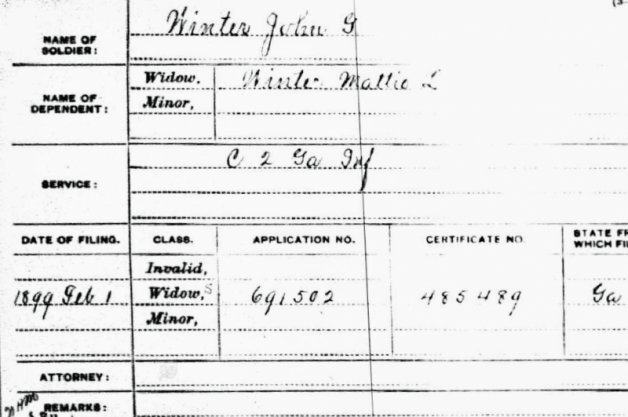 Winter John G
NAME OF SOLDIER:
Widow, Winter Mallie L
NAME OF DEPENDENT:
Minor,
C 2 Ga Inf
SERVICE:
DATE OF FILING. CLASS. APPLICATION NO. CERTIFICATE NO. STATE FR
WHICH FI
Invalid,
1899 Feb 1 Widow,s 691502 485489 Ga
Minor,
ATTORNEY:
REMARKS: